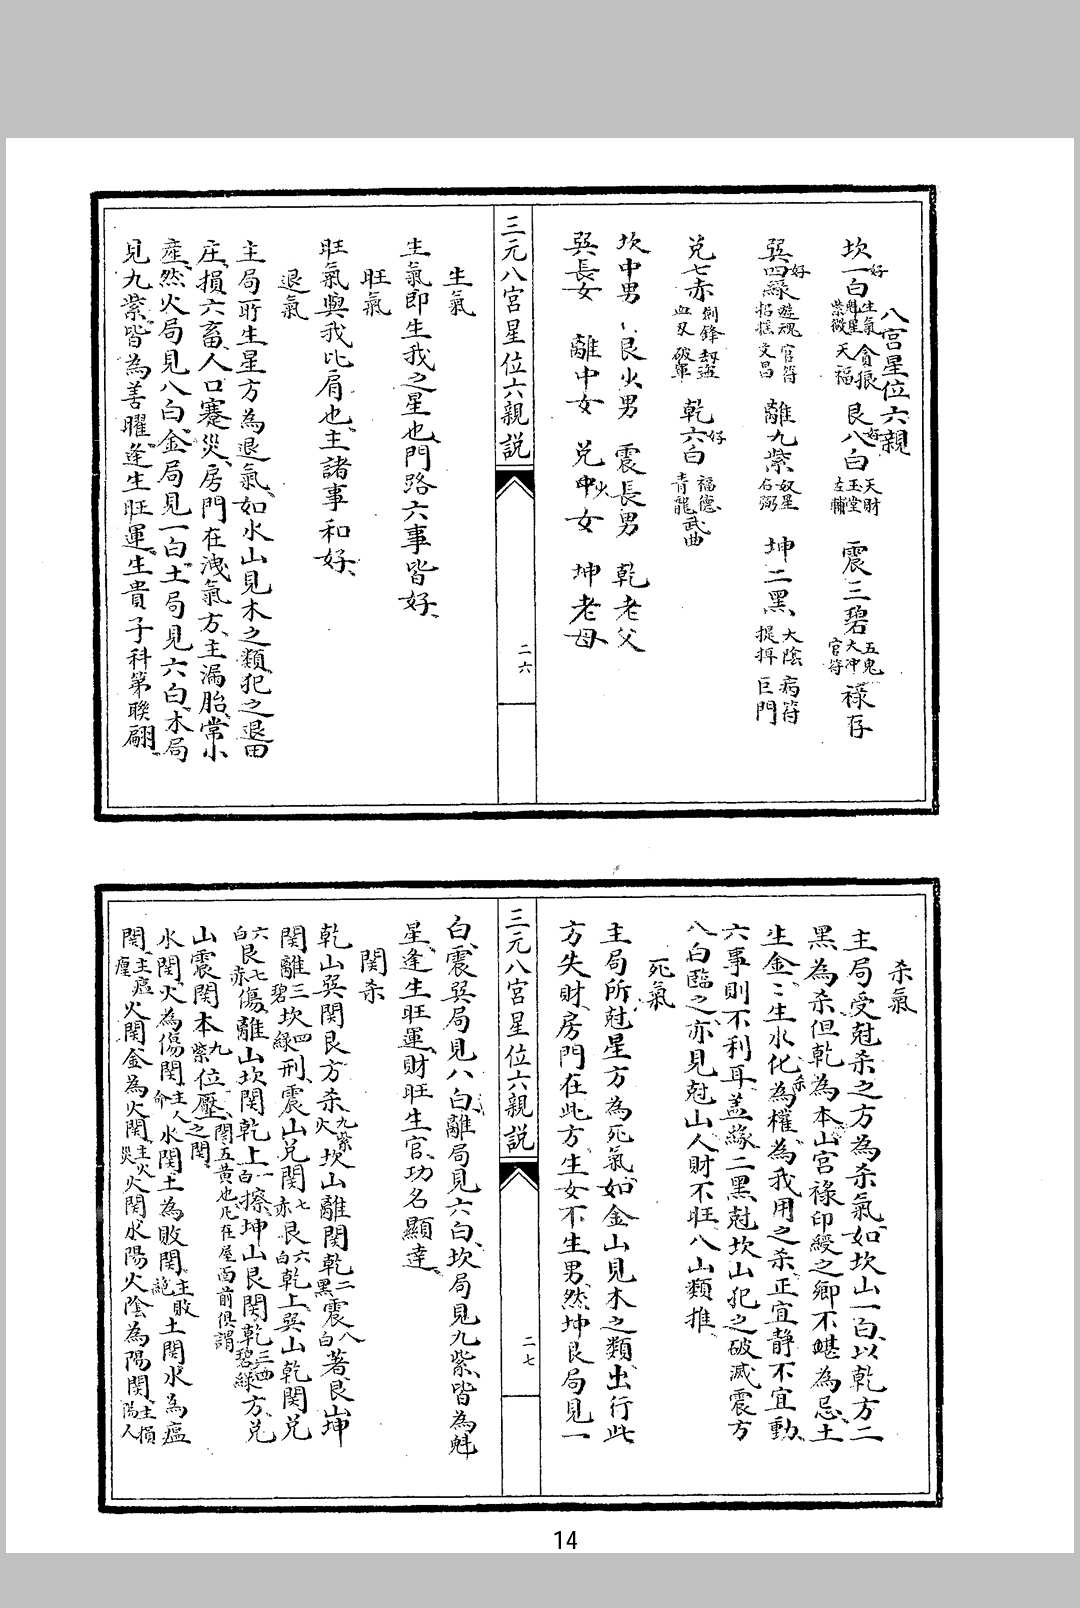 八宮星位六親
坎一白好生氣貪狼魁星紫微天福 艮八白好天財玉堂左輔 震三碧五鬼大冲官符祿存
巽四綠好遊魂官符招搖文昌 離九紫奴星右弼 坤二黑大陰病符提捍巨門
兌七赤刺鋒刼盜血刄破軍 乾六白好福德武曲青龍
坎中男 艮少男 震長男 乾老父
巽長女 離中女 兌少女 坤老母
三元八宮星位六親説
二六
生氣
生氣即生我之星也門路六事皆好
旺氣
旺氣與我比肩也主諸事和好
退氣
主局所生星方為退氣如水山見木之類犯之退田
庄損六畜人口蹇災房門在洩氣方主漏胎常小
產然火局見八白金局見一白土局見六白木局
見九紫皆為善曜逢生旺運生貴子科第聯翩
杀氣
主局受尅杀之方為杀氣如坎山一白以乾方二
黑為杀但乾為本山宮祿印綬之鄉不堪為忌土
生金金生水化杀為權為我用之杀正宜静不宜動
六事則不利耳盖緣二黑尅坎山犯之破滅震方
八白臨之亦見尅山人財不旺八山類推
死氣
主局所尅星方為死氣如金山見木之類出行此
方失財房門在此方生女不生男然坤艮局見一
白震巽局見八白離局見六白坎局見九紫皆為魁
星逢生旺運財旺生官功名顯達
三元八宮星位六親説
二七
関杀
乾山巽関艮方杀九紫火坎山離関乾二黑震八白著艮山坤
関離三碧坎四綠刑震山兌関七赤艮六白乾上巽山乾関兌
六白艮七赤傷離山坎関乾上一白擦坤山艮関乾三碧四綠方兌
山震関本九紫位壓之関関五黄也凡在屋面前俱謂
水関火為傷関主人命水関土為敗関主敗絶土関水為瘟
関主瘟㾮火関金為火関主火災火関水陽火陰為陽関主損陽人
14